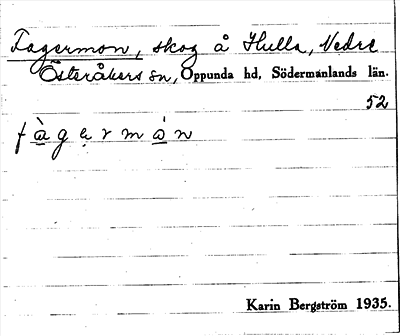 Fagermon, skog å Hulla, Nedre
Österåkers sn, Oppunda hd, Södermanlands län.
52
fà̲gẹrmȧ̲n
Karin Bergström 1935.